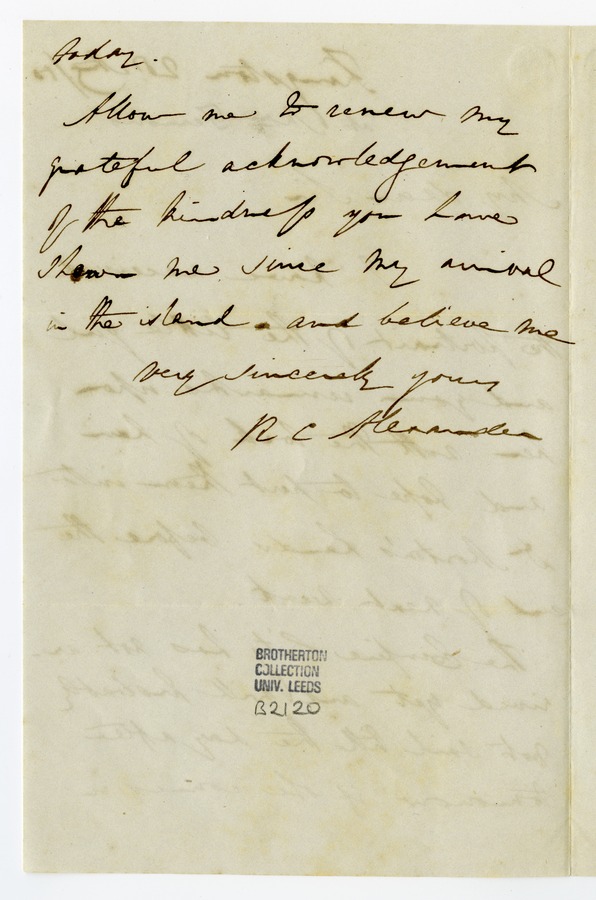 today.
Allow me to renew my
grateful acknowledgement
of the kindness you have
shewn me since my arrival
in the island and believe me
very sincerely yours
R C Alexander
BROTHERTON
COLLECTION
UNIV. LEEDS
B2120